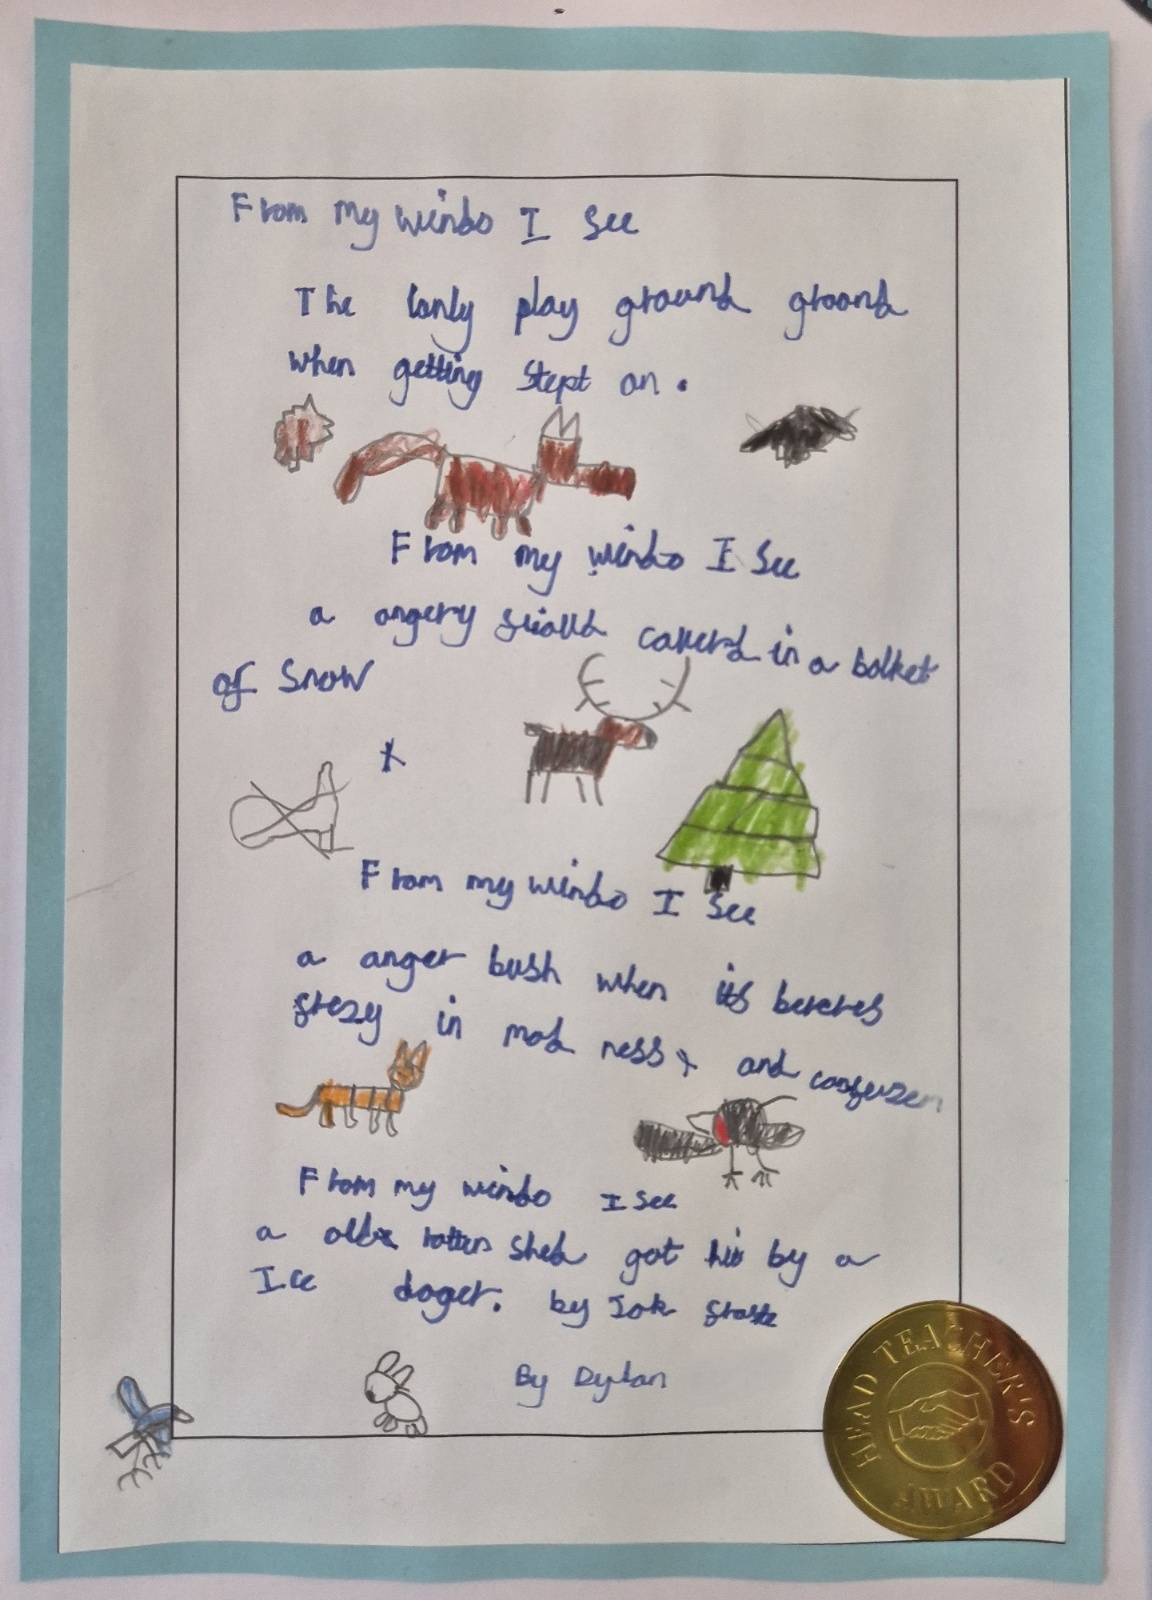 From my windo I see
The lonly play ground groond
when getting stept on.
From my windo I see
a angery friald caverd in a balket
of snow
From my windo I see
a anger bush when its bereres
frezy in mad ness and confuzen
From my windo I see
a old rotten shed got hit by a
Ice dager. by Jak
By Dylan
HEAD TEACHER'S
AWARD